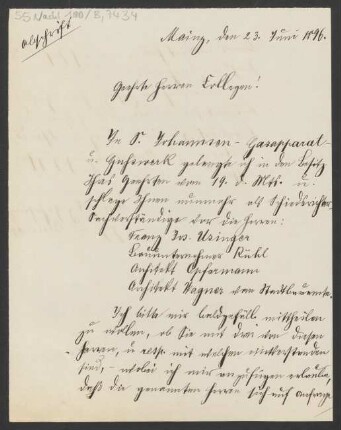 Abschrift
Mainz, den 23. Juni 1896.
Geehrte Herren Collegen!
In S. Johannsen - Gasapparat
u. Gußwerk gelangte ich in den Besitz
Ihres Geehrten vom 19. d. Mts. u.
schlage Ihnen nunmehr als Schiedsrichter
Sachverständige vor die Herren:
Franz Jos. Usinger
Bauunternehmer Rühl
Architekt Opfermann
Architekt Wagner vom Stadtbauamte.
Ich bitte mir baldgefälligst mittheilen
zu wollen, ob Sie mit drei von diesen
Herren, u. mit welchen einverstanden
sind, - wobei ich mir anzufügen erlaube,
daß die genannten Herren sich auf Anfrage